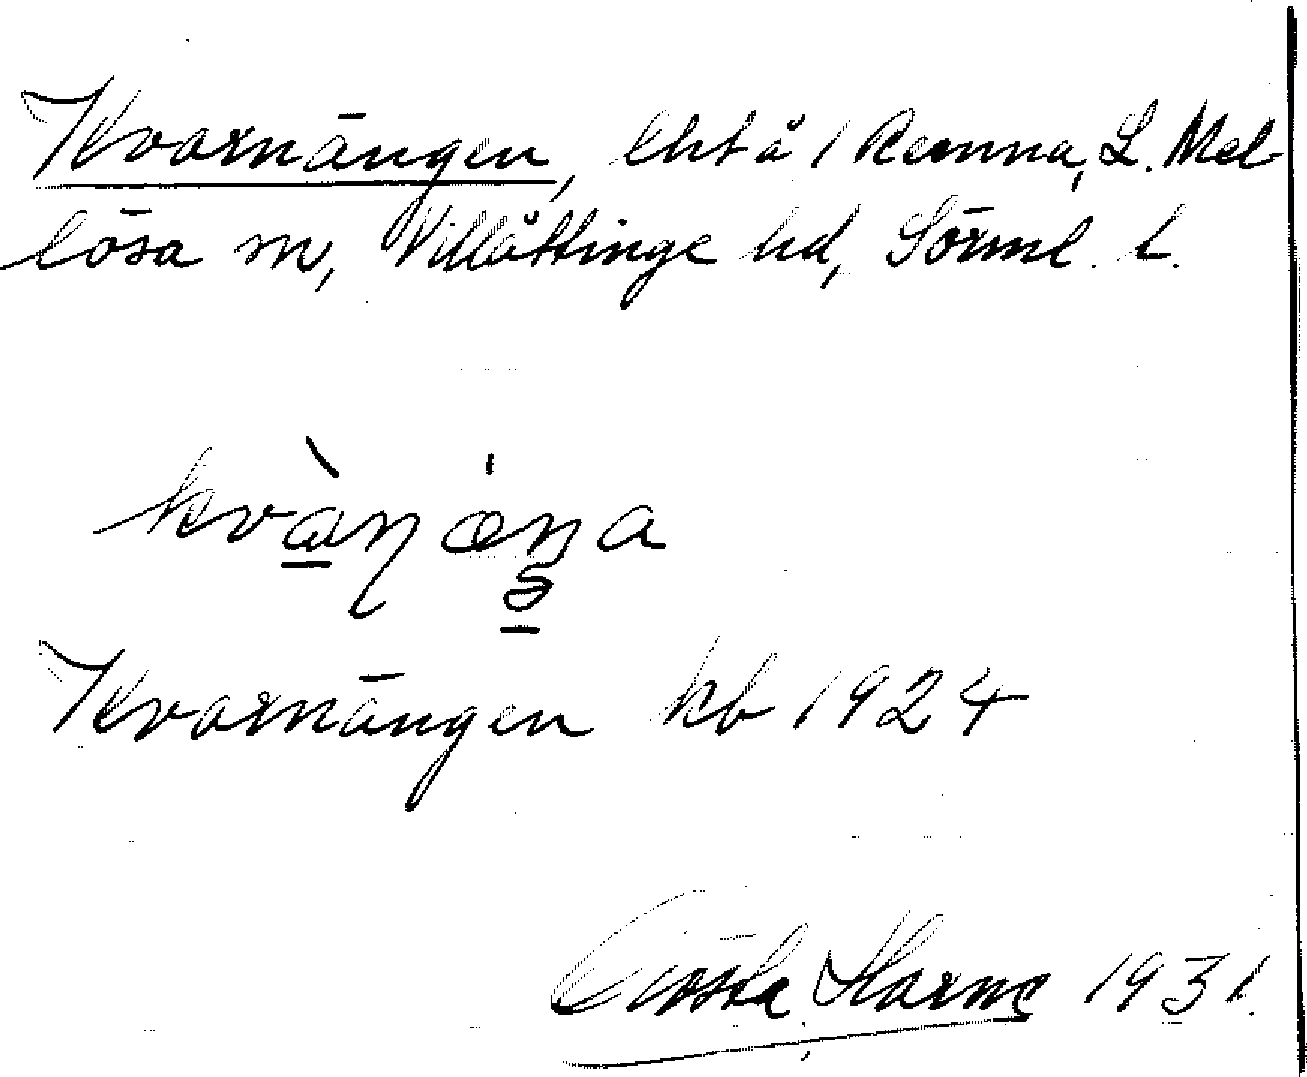 Kvarnängen, lht å 1 Ramna, L. Mel-
lösa sn, Villåttinge hd, Sörml. l.
kvànæŋa
Kvarnängen kb 1924
Gösta 1931.